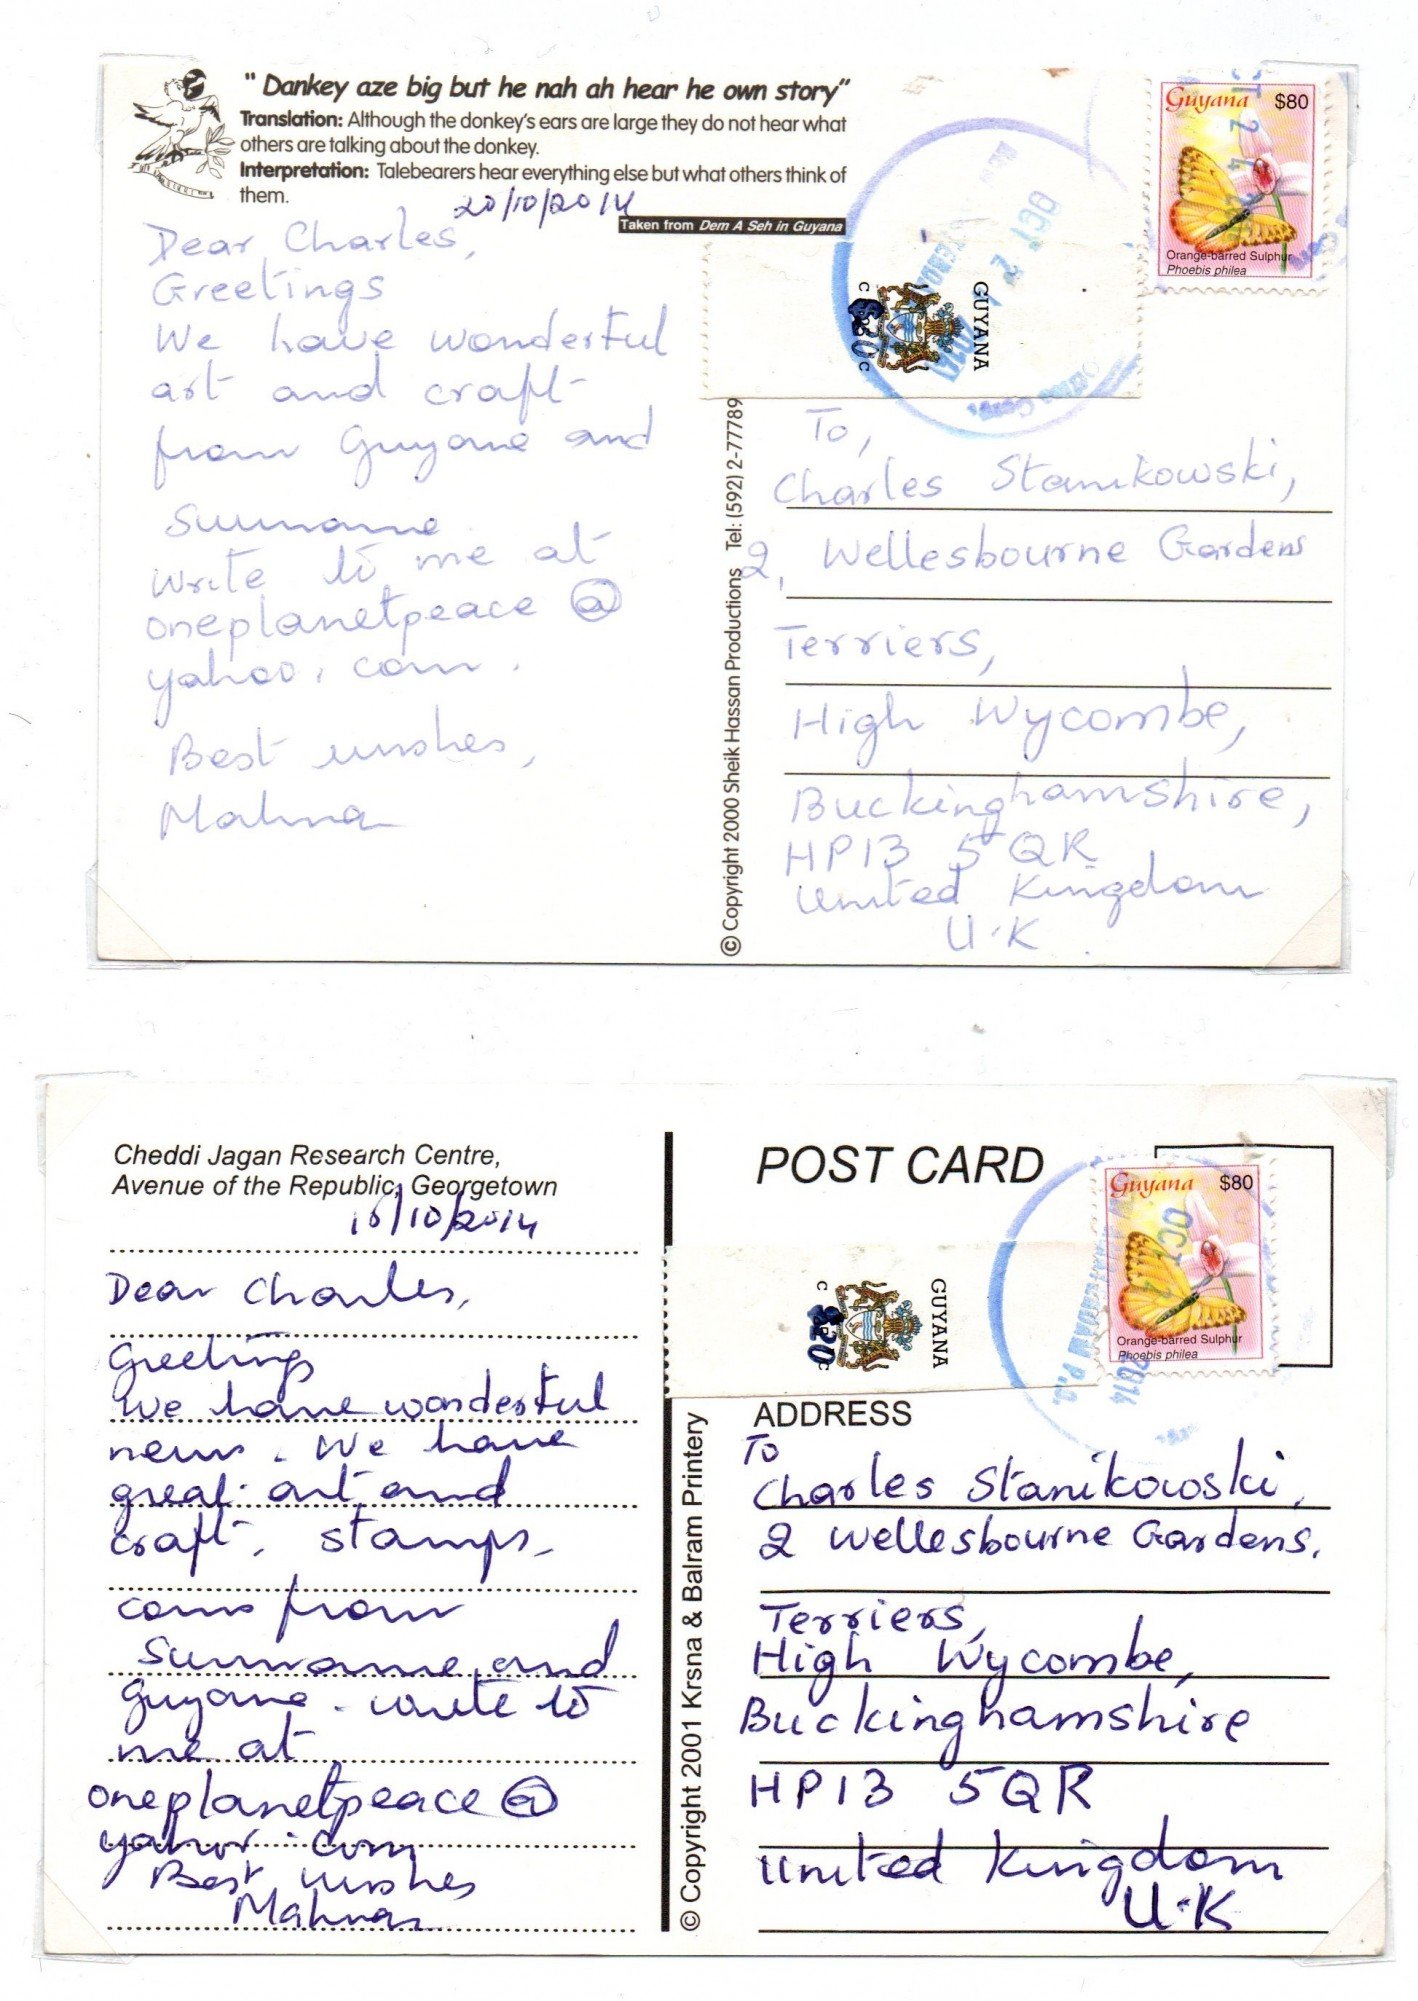 " Dankey aze big but he nah ah hear he own story"
Translation: Although the donkey's ears are large they do not hear what
others are talking about the donkey.
Interpretation: Talebearers hear everything else but what others think of
them.
20/10/2014
Taken from Dem A Seh in Guyana
Dear Charles,
Greetings
We have wonderful
art and craft
from Guyana and
Suriname
write to me at
oneplanetpeace @
yahoo. com.
Best wishes,
© Copyright 2000 Sheik Hassan Productions Tel: (592) 2-77789
Guyana $80
Orange-barred Sulphur
Phoebis philea
GUYANA
OCT 24
To,
Charles Stanikowski,
2, Wellesbourne Gardens
Terriers,
High Wycombe,
Buckinghamshire,
HP13 5QR
United Kingdom
U.K.
Cheddi Jagan Research Centre,
Avenue of the Republic, Georgetown
/10/2014
Dear Charles,
Greetings
We have wonderful
news. We have
great art and
craft, stamps,
coins from
Suriname and
Guyana. write to
me at
oneplanetpeace @
yahoo. com
Best wishes
© Copyright 2001 Krsna & Balram Printery
POST CARD
Guyana $80
Orange-barred Sulphur
Phoebis philea
GUYANA
$20
OCT
2014
ADDRESS
To
Charles Stanikowski,
2 Wellesbourne Gardens,
Terriers,
High Wycombe,
Buckinghamshire
HP13 5QR
United Kingdom
U.K